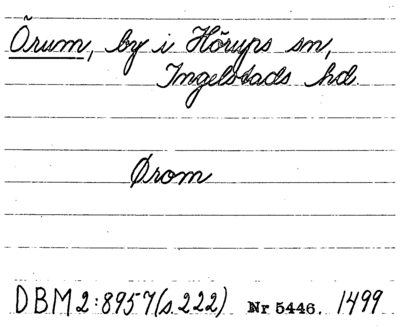 Örum, by i Hörups sn,
Ingelstads hd
Ørom
DBM 2:8957 (s.222) Nr 5446. 1499